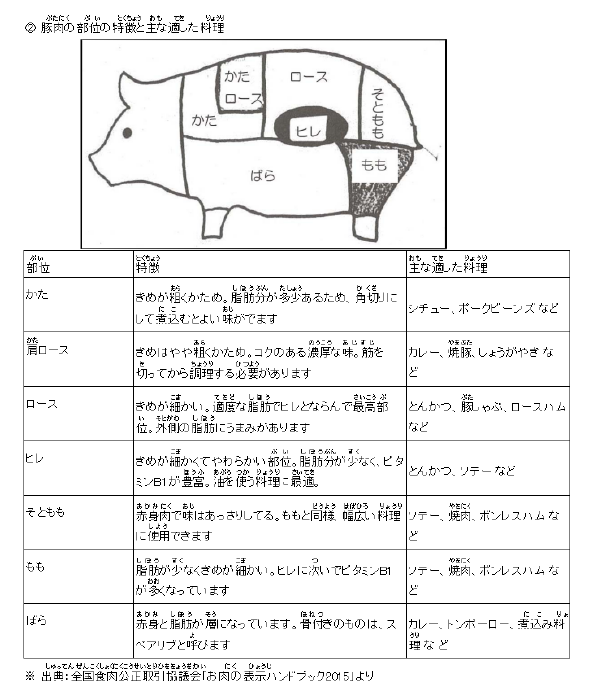 ② 豚肉の部位の特徴と主な適した料理
かた
ロース
ロース
そともも
かた
ヒレ
ばら
もも
部位 特徴 主な適した料理
かた きめが粗くかため。脂肪分が多少あるため、角切りに シチュー、ポークビーンズ など
して煮込むとよい味がでます
肩ロース きめはやや粗くかため。コクのある濃厚な味。筋を カレー、焼豚、しょうがやき な
切ってから調理する必要があります ど
ロース きめが細かい。適度な脂肪でヒレとならんで最高部 とんかつ、豚しゃぶ、ロースハム
位。外側の脂肪にうまみがあります など
ヒレ きめが細かくてやわらかい部位。脂肪分が少なく、ビタ とんかつ、ソテー など
ミンB1が豊富。油を使う料理に最適。
そともも 赤身肉で味はあっさりしてる。ももと同様、幅広い料理 ソテー、焼肉、ボンレスハム な
に使用できます ど
もも 脂肪が少なくきめが細かい。ヒレに次いでビタミンB1 ソテー、焼肉、ボンレスハム な
が多くなっています ど
ばら 赤身と脂肪が層になっています。骨付きのものは、ス カレー、トンポーロー、煮込み料
ペアリブと呼びます 理 など
※ 出典：全国食肉公正取引協議会「お肉の表示ハンドブック2015」より